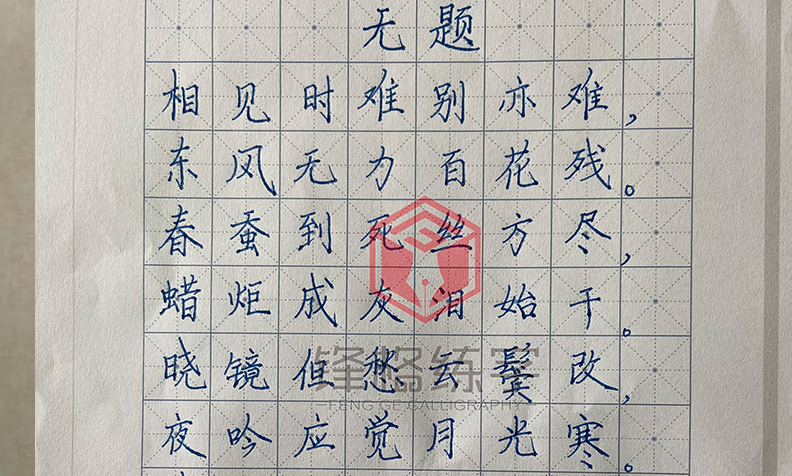 无题
相见时难别亦难，
东风无力百花残。
春蚕到死丝方尽，
蜡炬成灰泪始干。
晓镜但愁云鬓改，
夜吟应觉月光寒。
锋格练字
FENG GE CALLIGRAPHY